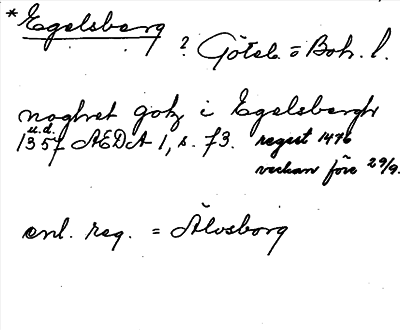 *Egelsberg
? Göteb. o Boh. l.
noghot gotz i Egelsbergh
u.d.
1357 AEDA 1, s. 73. regest 1476
veckan före 29/9.
enl. reg. = Älvsborg